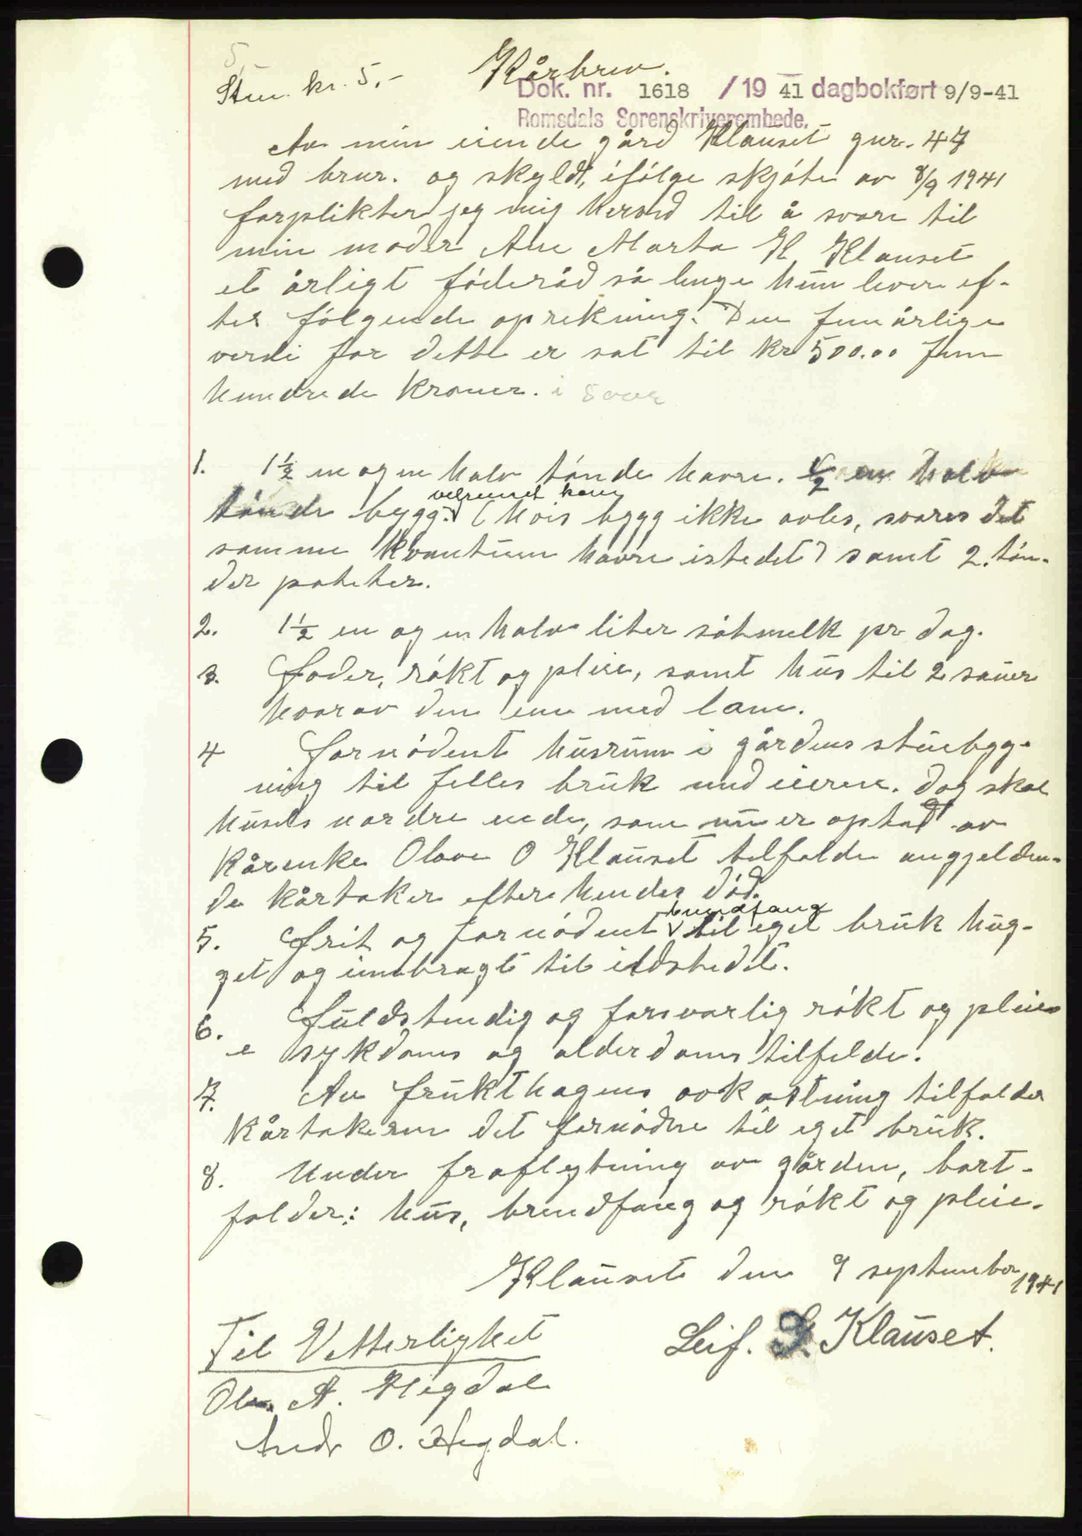 5,
Stm. kr. 5.-
Kårbrev.
Dok. nr. 1618 / 19 41 dagbokført 9/9-41
Romsdals Sorenskriverembede.
Av min eiende gård Klauset gnr. 47
med brnr. og skyld, ifølge skjøte av 8/9 1941
forplikter jeg mig herved til å svare til
min moder Ane Marta H Klauset
et årligt føderåd så lenge hun lever ef-
ter følgende oprekning. Den femårlige
verdi for dette er sat til kr 500.00 fem
hundrede kroner. i 5 aar
1. 1½ en og en halv tønde havre. ½ en halv
tønde bygg. velrenset korn (Hvis bygg ikke avles, svares det
samme kvantum havre istedet) samt 2. tøn-
der poteter.
2. 1½ en og en halv liter søtmelk pr dag.
3. Foder, røkt og pleie, samt hus til 2 sauer
hvorav den ene med lam.
4 Fornødent husrum i gårdens stuebyg-
ning til felles bruk med eieren. Dog skal
husets nordre ende, som nu er optat av
kårenke Olave O Klauset tilfalde angjelden-
de kårtaker efter hendes død.
5. Frit og fornødent brendfang til eget bruk hug-
get og innbragt til ildstedet.
6. Fuldstendig og forsvarlig røkt og pleie
i sykdoms og alderdoms tilfelde.
7. Av frukthagens avkastning tilfalder
kårtakeren det fornødne til eget bruk.
8. Under fraflytning av gården, bort-
falder: hus, brendfang og røkt og pleie.
Klauset den 9 september 1941
Leif. S. Klauset.
Til Vitterlighet
Ola A. Hegdal
Andr O. Hegdal.